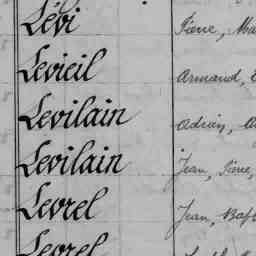 Lévi Pierre, Ma
Levieil Armand, E
Levilain Adrien, Au
Levilain Jean, Pierre,
Levrel Jean, Bapt
Levrel